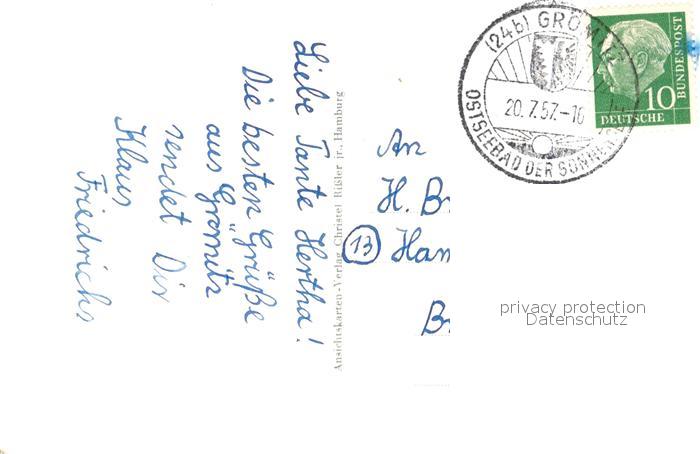 Liebe Tante Hertha!
Die besten Grüße
aus Grömitz
sendet Dir
Klaus
Friedrichs
Ansichtskarten-Verlag Christel Rißler jr., Hamburg
(24b) GRÖMITZ
20.7.57.-16
OSTSEEBAD DER SONNENSEITE
DEUTSCHE
BUNDESPOST
10
An
H. Br
13 Ham
Br
privacy protection
Datenschutz